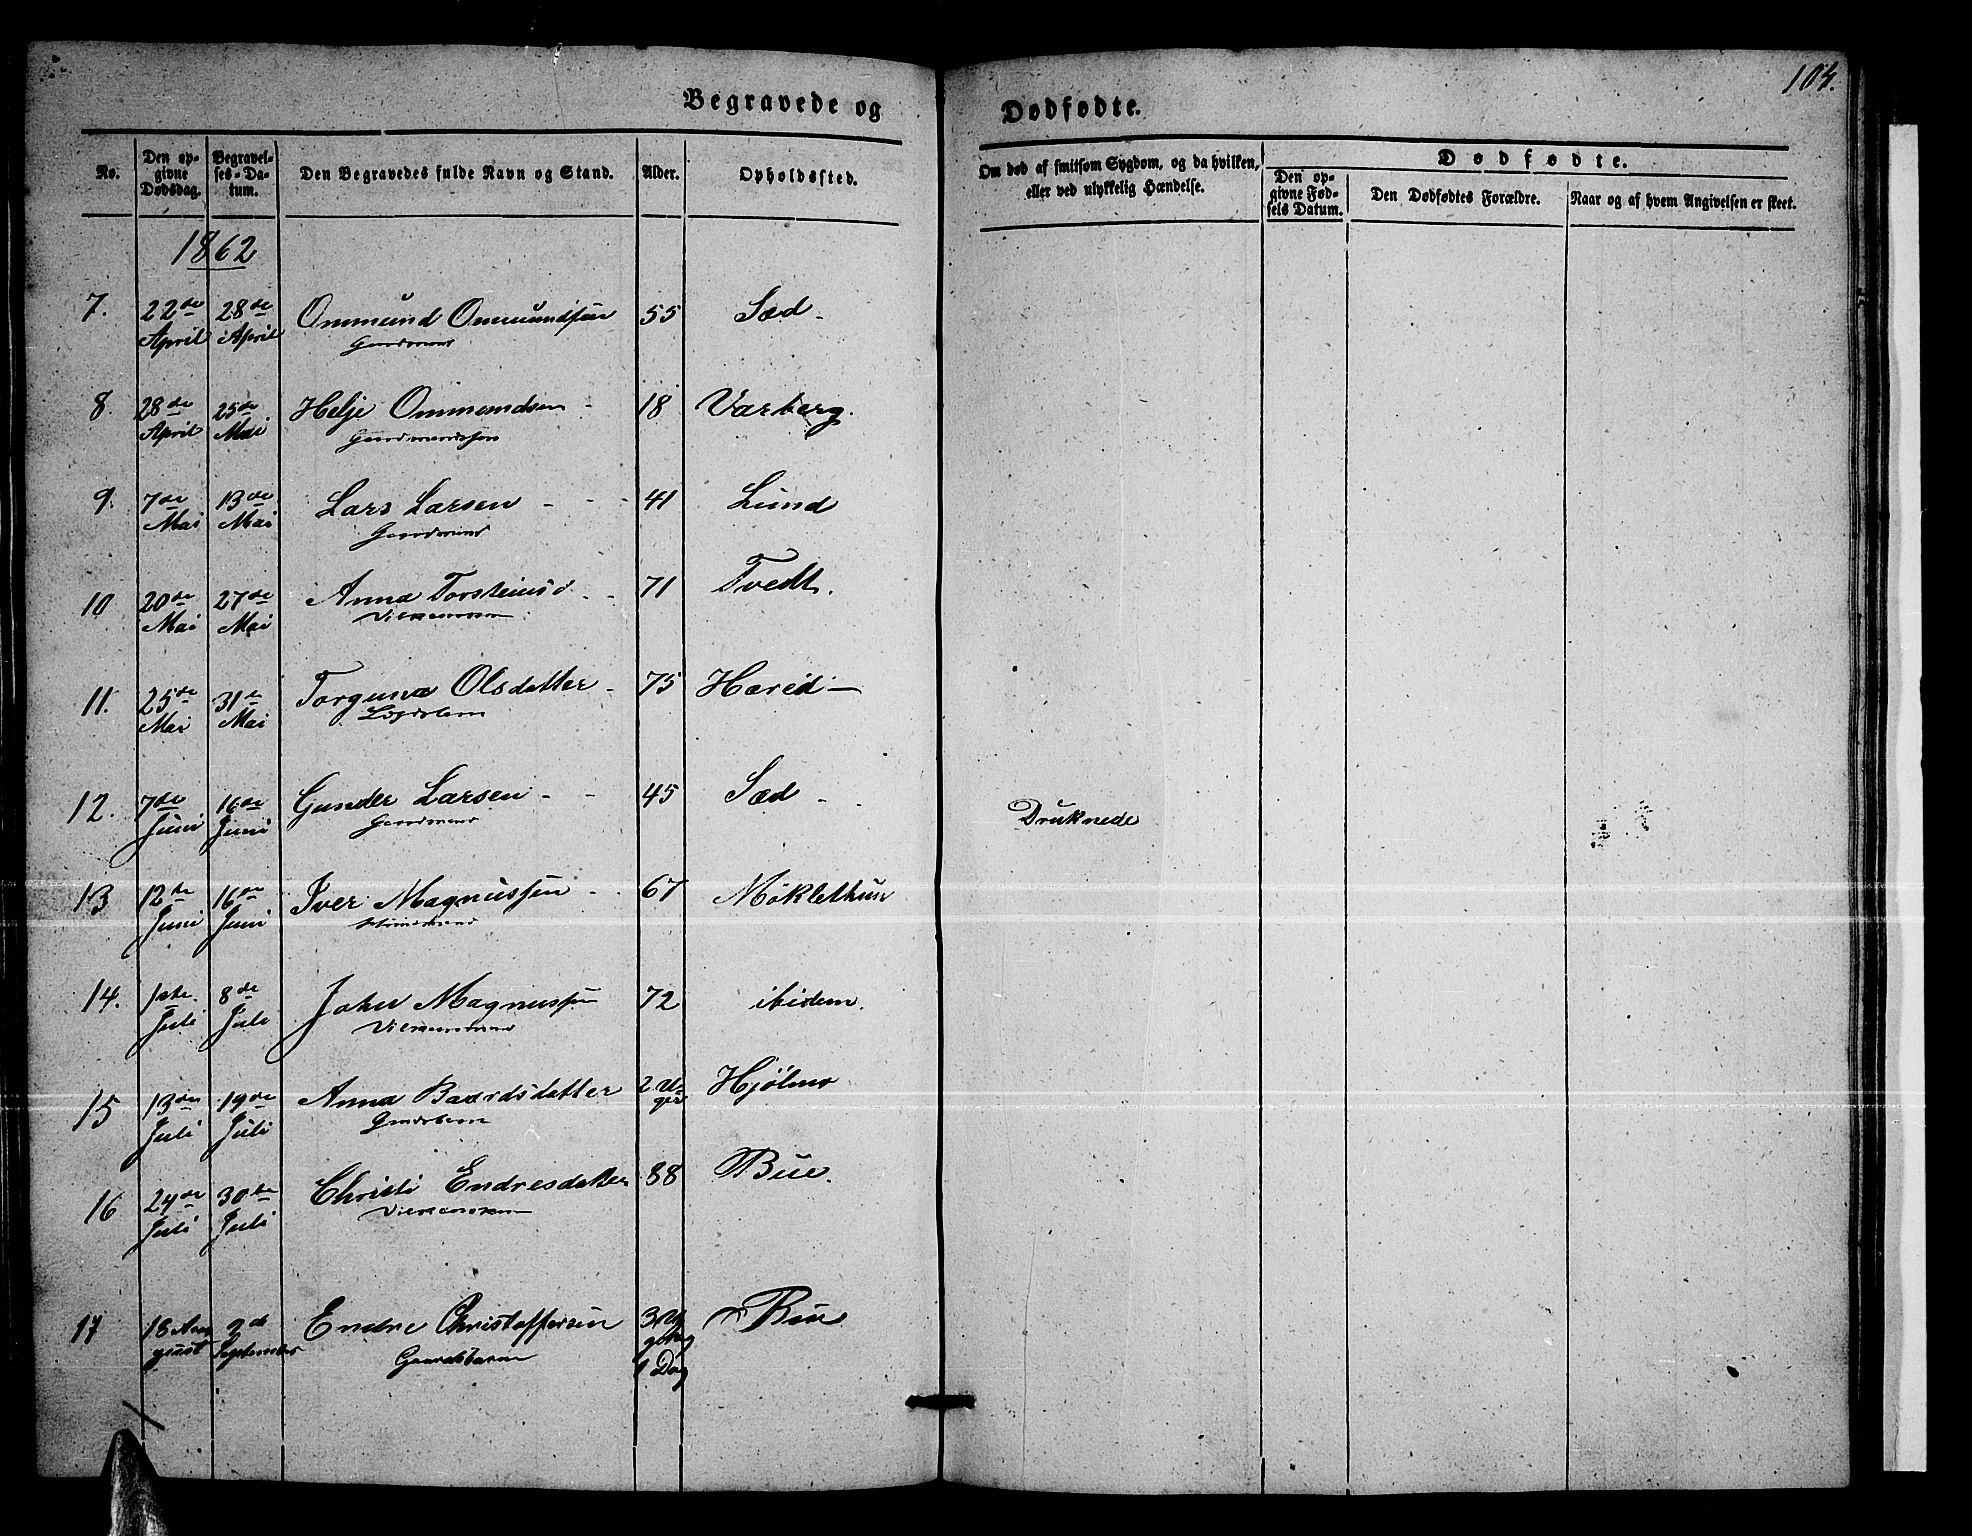 104.
Begravede og Dødfødte.
No. | Den opgivne Dødsdag. | Begravelses-Datum. | Den Begravedes fulde Navn og Stand. | Alder. | Opholdssted. | Om død af smitsom Sygdom, og da hvilken, eller ved ulykkelig Hændelse. | Dødfødte.
Den opgivne Fødsels Datum. | Den Dødfødtes Forældre. | Naar og af hvem Angivelsen er skeet.
1862
7. | 22de April | 28de April | Ommund Ommundsen | 55 | Sæd
Gaardmand
8. | 28de April | 25de Mai | Helje Ommundsen | 18 | Varberg.
Gaardmandssøn
9. | 7de Mai | 13de Mai | Lars Larsen | 41 | Lund
Gaardmand
10 | 20de Mai | 27de Mai | Anna Torsteinsd | 71 | Tvedt.
11. | 25de Mai | 31te Mai | Torguna Olsdatter | 75 | Hareid
12. | 7de Juni | 16de Juni | Gunder Larsen | 45 | Sæd | Druknede
Gaardmand
13 | 12te Juni | 16de Juni | Iver Magnussen | 67 | Møklethun
14. | 1ste Juli | 8de Juli | John Magnussen | 72 | ibidem.
15 | 13de Juli | 19de Juli | Anna Baardsdatter | 2 Uger | Hjølmo
Gaardbarn
16 | 24de Juli | 30te Juli | Christi Endresdatter | 88 | Bue.
17 | 18 August | 2d September | Endre Christoffersen | 3 Uger og 1 Dag | Bue
Gaardsbarn